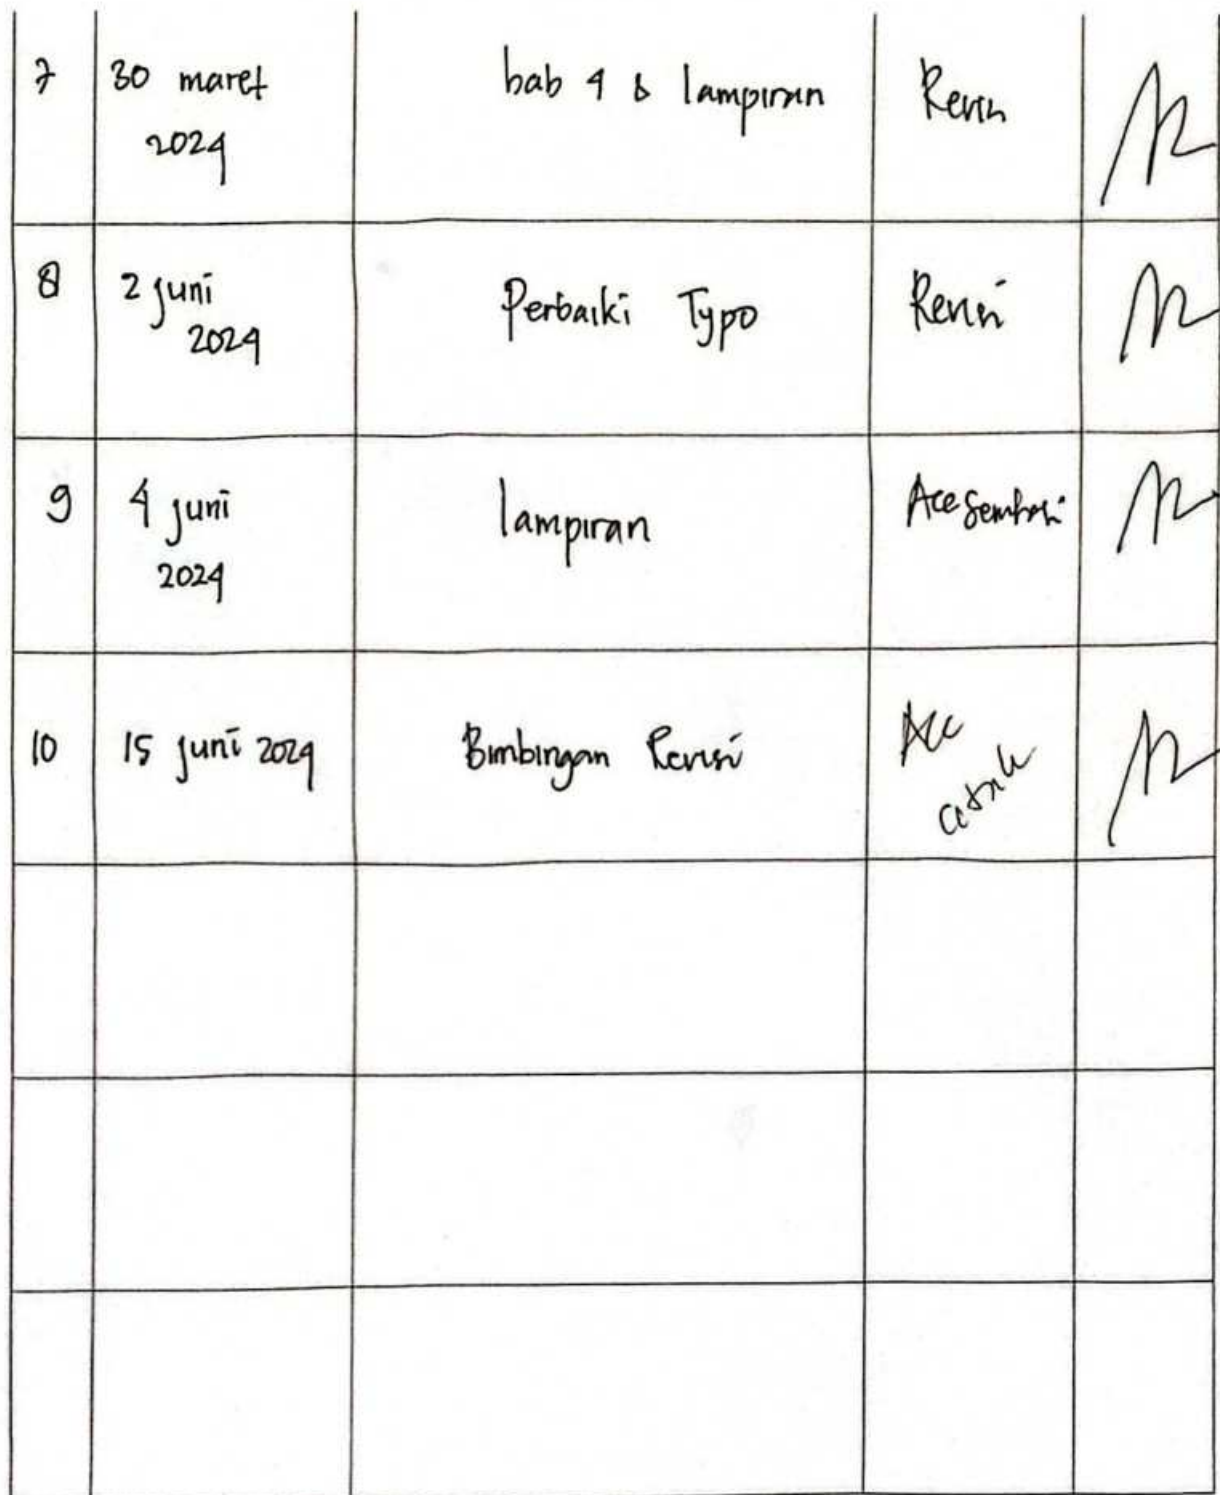 7 30 maret bab 4 & lampiran Revisi
2024
8 2 juni Perbaiki Typo Revisi
2024
9 4 juni lampiran Acc Semhas
2024
10 15 juni 2024 Bimbingan Revisi Acc
cetak